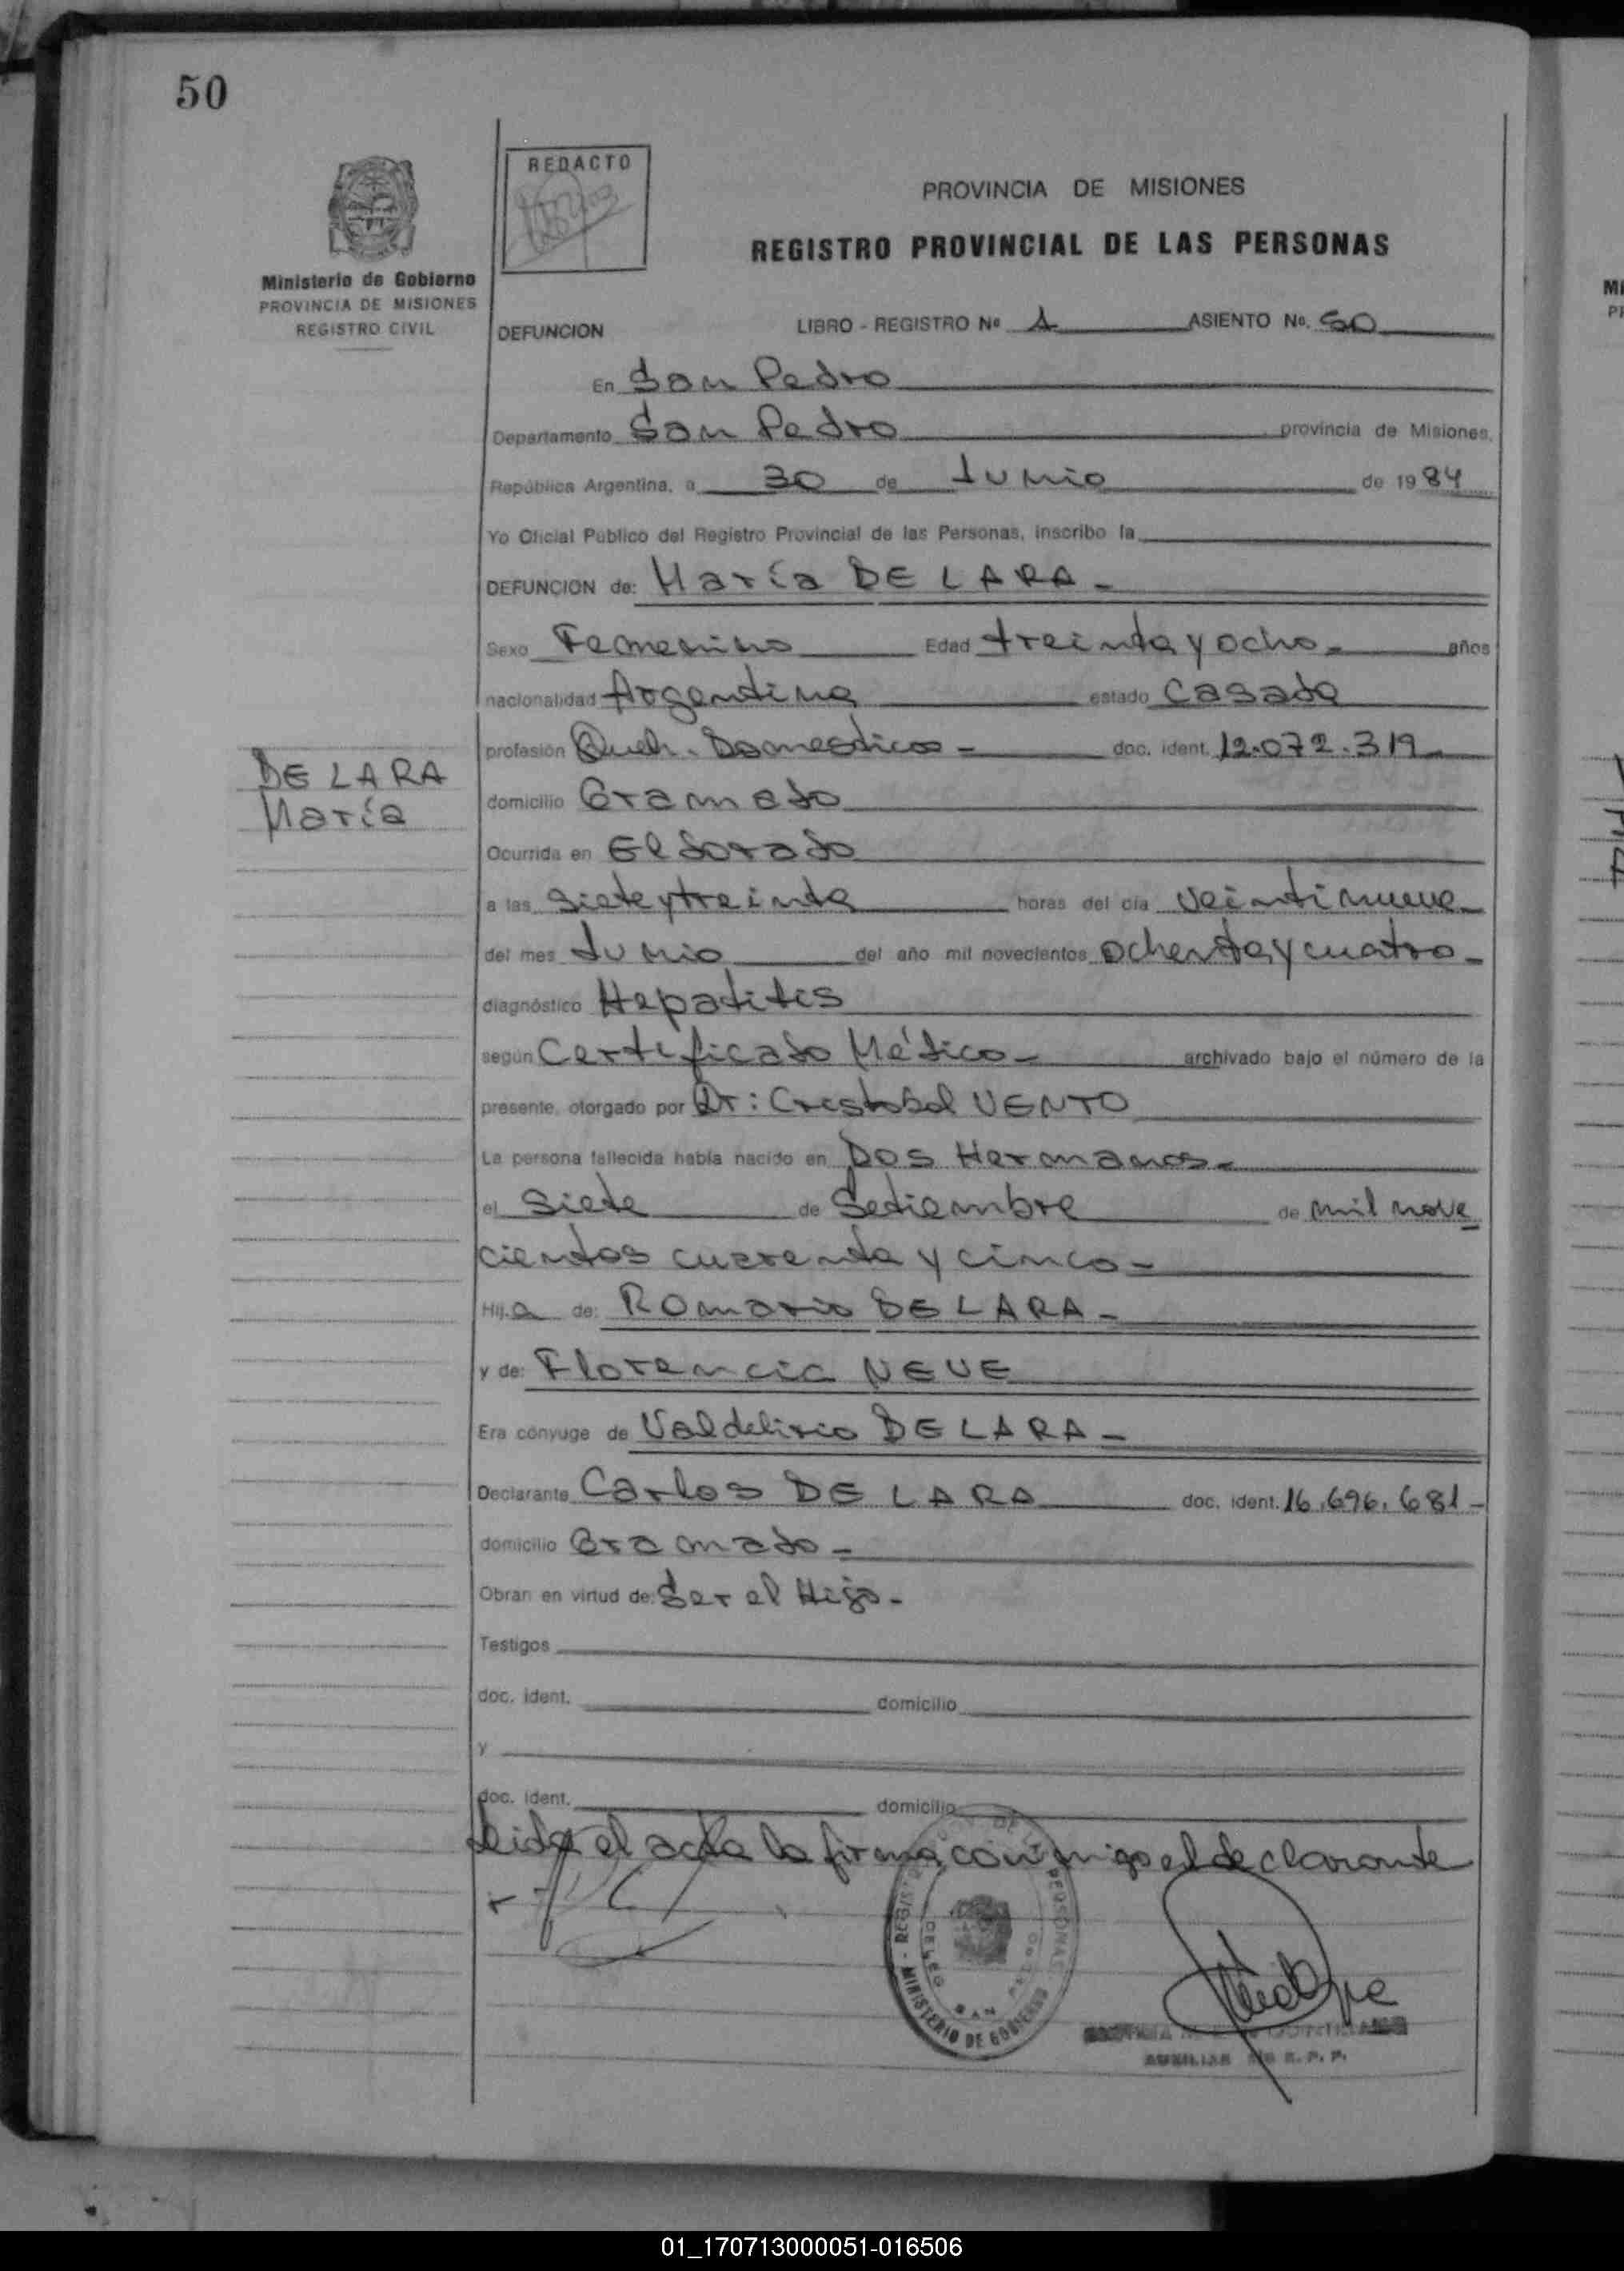 50
REDACTO
PROVINCIA DE MISIONES
REGISTRO PROVINCIAL DE LAS PERSONAS
Ministerio de Gobierno
PROVINCIA DE MISIONES
REGISTRO CIVIL
DEFUNCION LIBRO - REGISTRO Nº 1 ASIENTO No. 50
En San Pedro
Departamento San Pedro provincia de Misiones,
República Argentina, a 30 de Junio de 1984
Yo Oficial Público del Registro Provincial de las Personas, inscribo la
DEFUNCION de: María DE LARA -
Sexo Femenino Edad treinta y ocho - años
nacionalidad Argentina estado Casada
profesión Queh. Domesticos - doc. ident. 12.072.319
DE LARA
María
domicilio Gramado
Ocurrida en Eldorado
a las siete y treinta horas del día veintinueve
del mes Junio del año mil novecientos ochenta y cuatro -
diagnóstico Hepatitis
según Certificado Médico - archivado bajo el número de la
presente, otorgado por Dr: Cristobal VENTO
La persona fallecida había nacido en Dos Hermanos -
el Siete de Setiembre de mil nove
cientos cuarenta y cinco -
Hij.a de: Romario DE LARA -
y de: Florencia NEVE
Era cónyuge de Valdelirio DE LARA -
Declarante Carlos DE LARA doc. ident. 16.696.681 -
domicilio Gramado -
Obran en virtud de: Ser el Hijo -
Testigos
doc. ident. domicilio
y
doc. ident. domicilio
Leida el acta la firma conmigo el declarante
MINISTERIO DE GOBIERNO - REGISTRO DE LAS PERSONAS
DELEG. SAN PEDRO
AUXILIAR R. P. P.
01_170713000051-016506